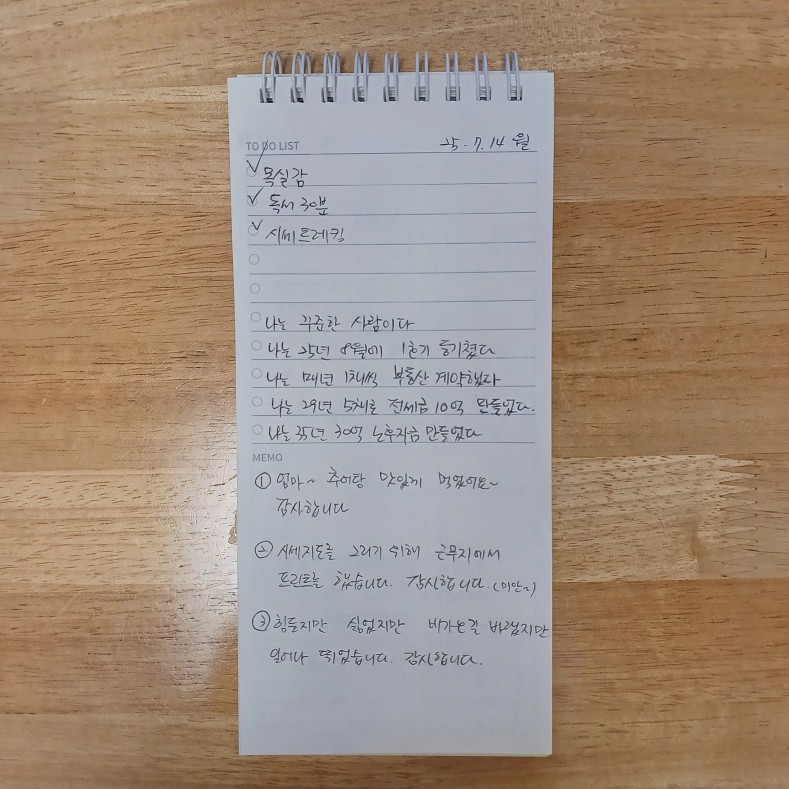 TO DO LIST 25. 7. 14 월
목실감
독서 30분
시세트레킹
나는 꾸준한 사람이다
나는 25년 8월에 1호기 등기쳤다
나는 매년 1채씩 부동산 계약했다
나는 29년 5채로 전세금 10억 만들었다.
나는 35년 30억 노후자금 만들었다
MEMO
① 엄마~ 추어탕 맛있게 먹었어요~
감사합니다
② 시세지도를 그리기 위해 근무지에서
프린트를 했습니다. 감사합니다. (미안~)
③ 힘든지만 싫었지만 비가 오길 바랬지만
일어나 뛰었습니다. 감사합니다.